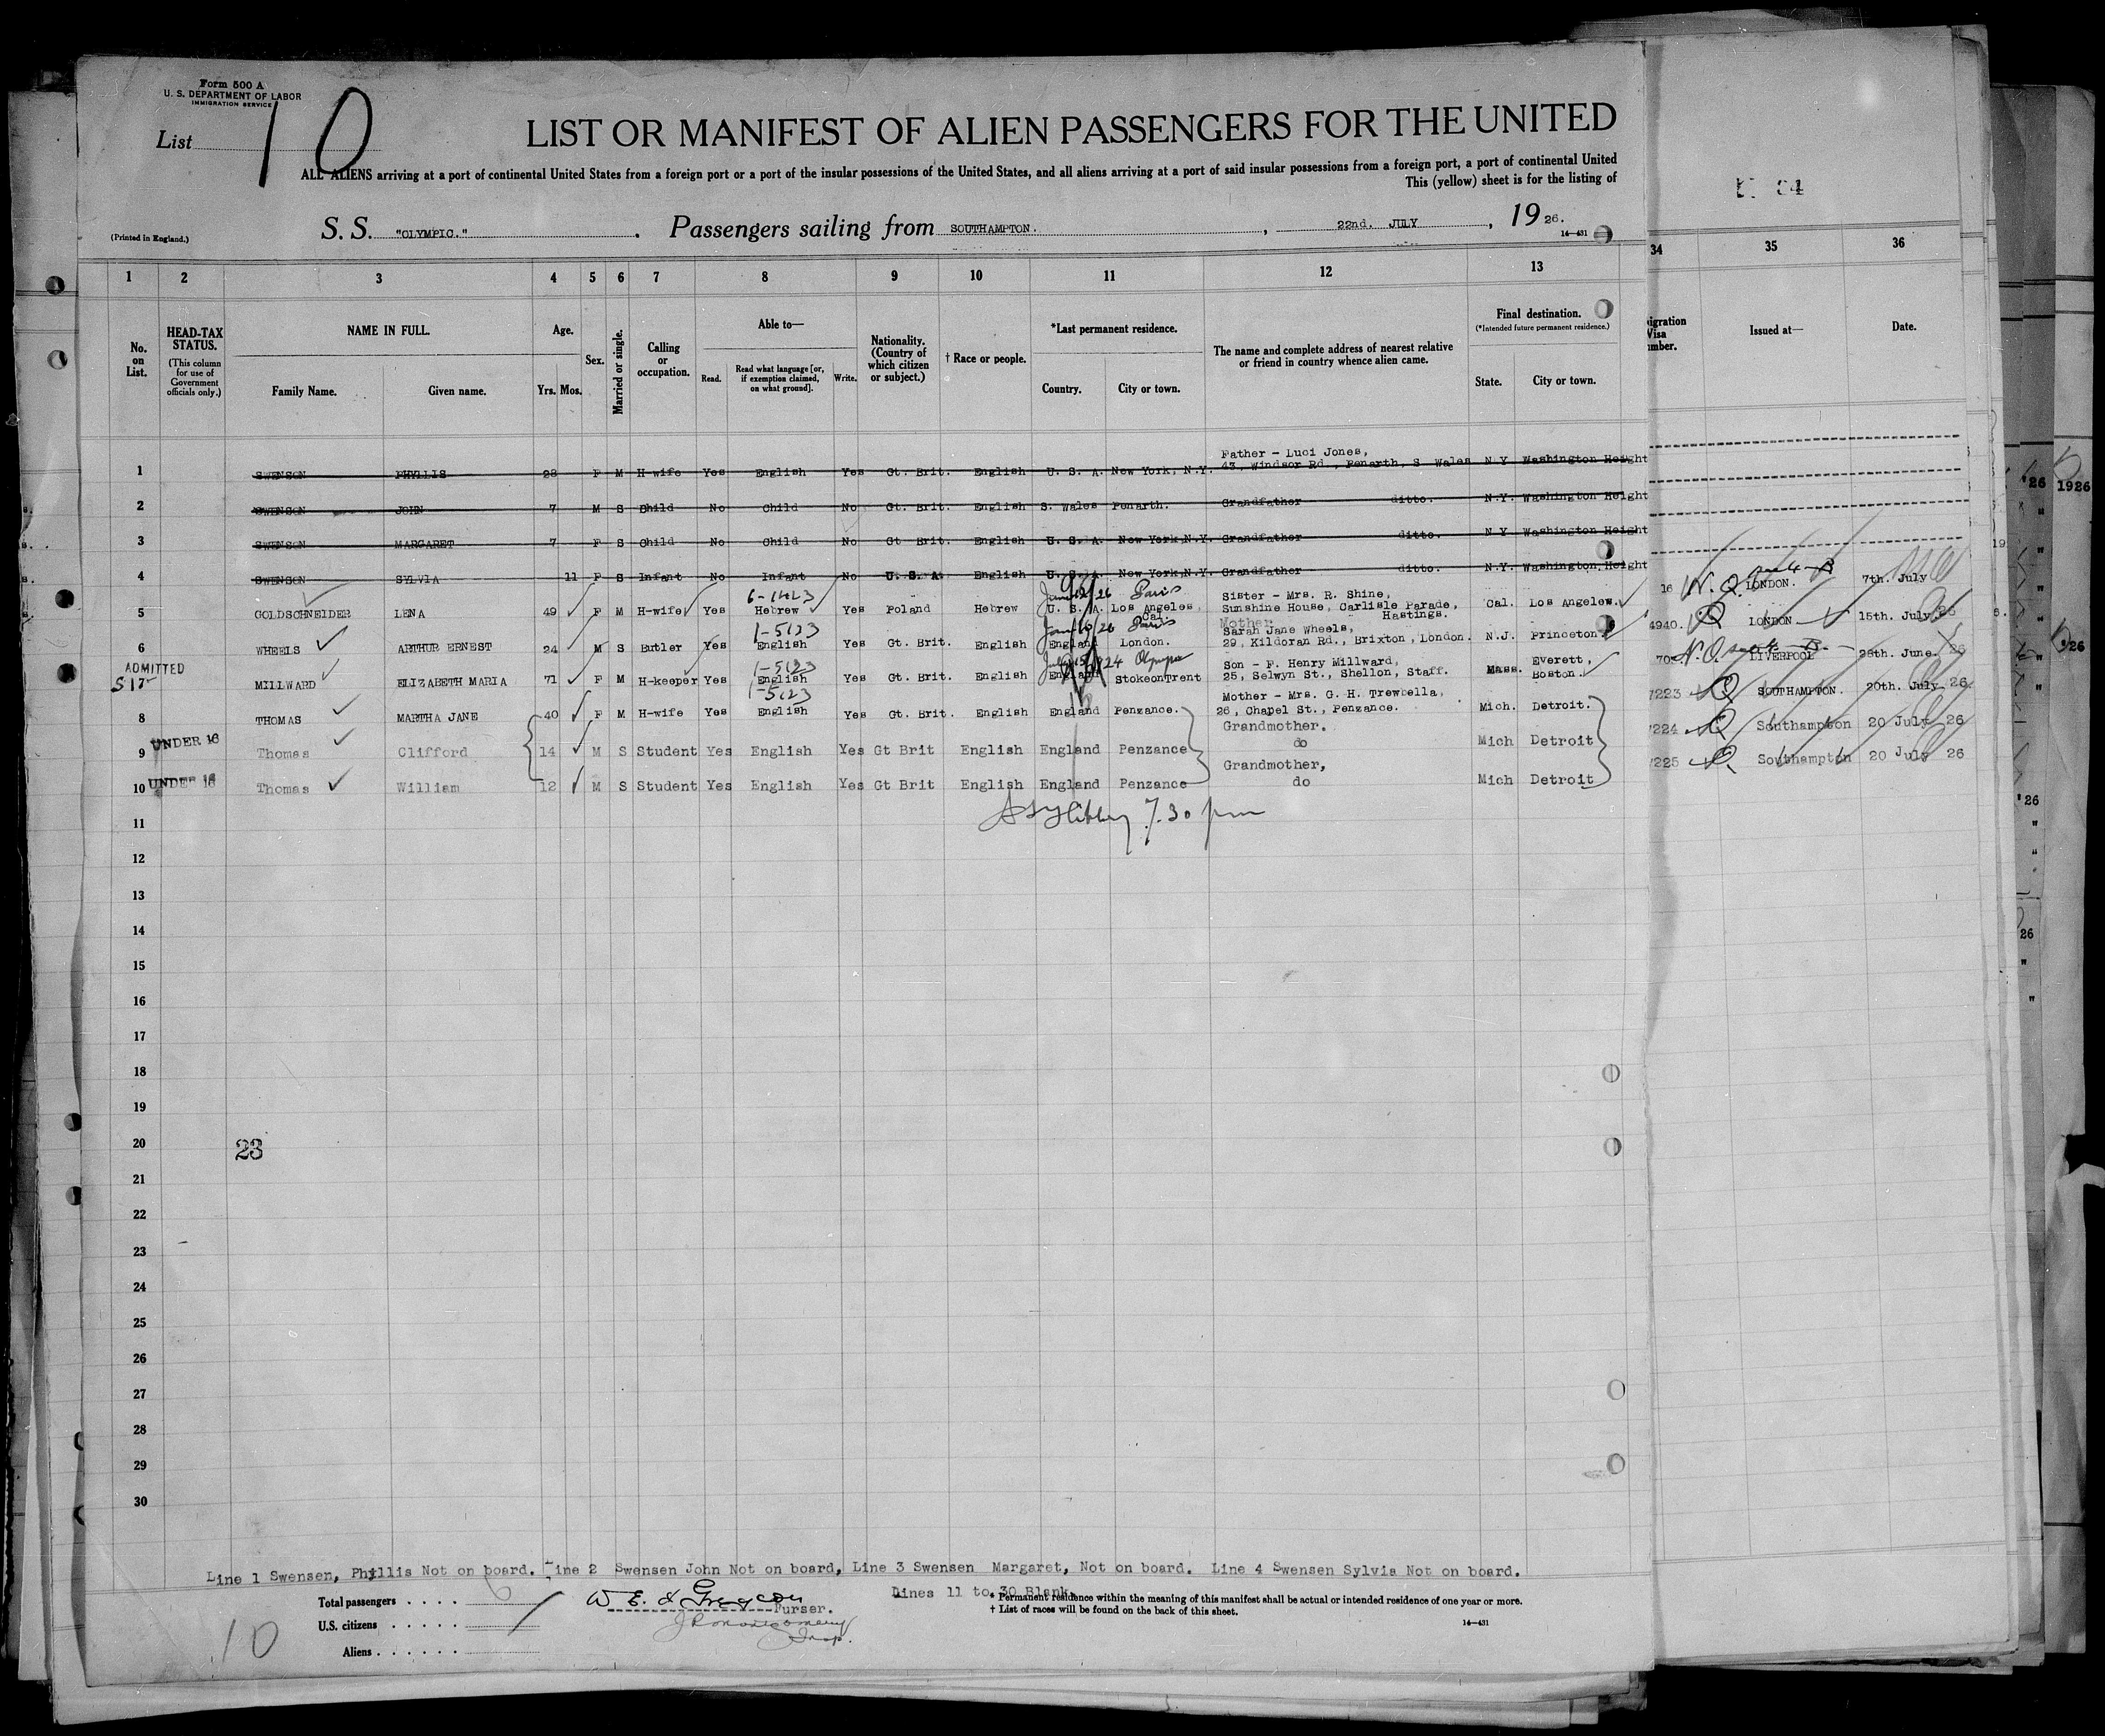 Form 500 A
U. S. DEPARTMENT OF LABOR
IMMIGRATION SERVICE
List 10
LIST OR MANIFEST OF ALIEN PASSENGERS FOR THE UNITED
ALL ALIENS arriving at a port of continental United States from a foreign port or a port of the insular possessions of the United States, and all aliens arriving at a port of said insular possessions from a foreign port, a port of continental United
This (yellow) sheet is for the listing of
(Printed in England.)
S. S. "OLYMPIC." Passengers sailing from SOUTHAMPTON. , 22nd. JULY , 19 26.
14-431
1 2 3 4 5 6 7 8 9 10 11 12 13 34 35 36
No. on List.
HEAD-TAX STATUS.
(This column for use of Government officials only.)
NAME IN FULL.
Family Name. Given name.
Age.
Yrs. Mos.
Sex.
Married or single.
Calling or occupation.
Able to—
Read. Read what language [or, if exemption claimed, on what ground]. Write.
Nationality. (Country of which citizen or subject.)
† Race or people.
*Last permanent residence.
Country. City or town.
The name and complete address of nearest relative or friend in country whence alien came.
Final destination.
(*Intended future permanent residence.)
State. City or town.
Issued at—
Date.
Father - Luci Jones,
1 SWENSON PHYLLIS 28 F M H-wife Yes English Yes Gt. Brit. English U. S. A. New York, N.Y. 43, Windsor Rd., Penarth, S Wales N Y Washington Height
2 SWENSON JOHN 7 M S Child No Child No Gt. Brit. English S. Wales Penarth. Grandfather ditto. N.Y. Washington Height
3 SWENSON MARGARET 7 F S Child No Child No Gt Brit. English U. S. A. New York,N.Y. Grandfather ditto. N Y Washington Height
4 SWENSON SYLVIA 11 F S Infant No Infant No U. S. A. English U. S. A. New York,N.Y. Grandfather ditto. N.Y. Washington Height
6-1423 26 Paris Sister - Mrs. R. Shine,
5 GOLDSCHNEIDER LENA 49 F M H-wife Yes Hebrew Yes Poland Hebrew U. S. A. Los Angeles, Cal. Sunshine House, Carlisle Parade, Hastings. Cal. Los Angeles. 16 N. Q. LONDON. 7th. July
1-5123 26 Paris Mother
Sarah Jane Wheels,
6 WHEELS ARTHUR ERNEST 24 M S Butler Yes English Yes Gt. Brit. English England London. 29, Kildoran Rd., Brixton, London. N.J. Princeton 4940. Q LONDON 15th. July 26
ADMITTED
1-5123 1924 Olympic Son - F. Henry Millward, Everett,
MILLWARD ELIZABETH MARIA 71 F M H-keeper Yes English Yes Gt. Brit. English England StokeonTrent 25, Selwyn St., Shellon, Staff. Mass. Boston. 70 N.Q. LIVERPOOL 28th. June. 26
1-5123 Mother - Mrs. G. H. Trewbella,
8 THOMAS MARTHA JANE 40 F M H-wife Yes English Yes Gt. Brit. English England Penzance. 26, Chapel St., Penzance. Mich. Detroit. 7223 Q SOUTHAMPTON. 20th. July 26
UNDER 16 Grandmother.
9 Thomas Clifford 14 M S Student Yes English Yes Gt Brit English England Penzance do Mich Detroit 7224 Q Southampton 20 July 26
UNDER 16 Grandmother,
10 Thomas William 12 M S Student Yes English Yes Gt Brit English England Penzance do Mich Detroit 7225 Q Southampton 20 July 26
11 7.30 pm
12
13
14
15
16
17
18
19
20 23
21
22
23
24
25
26
27
28
29
30
Line 1 Swensen, Phyllis Not on board. Line 2 Swensen John Not on board, Line 3 Swensen Margaret, Not on board. Line 4 Swensen Sylvia Not on board.
Lines 11 to 30 Blank.
Total passengers 6
Purser.
U.S. citizens
Insp.
Aliens
10
* Permanent residence within the meaning of this manifest shall be actual or intended residence of one year or more.
† List of races will be found on the back of this sheet.
14-431